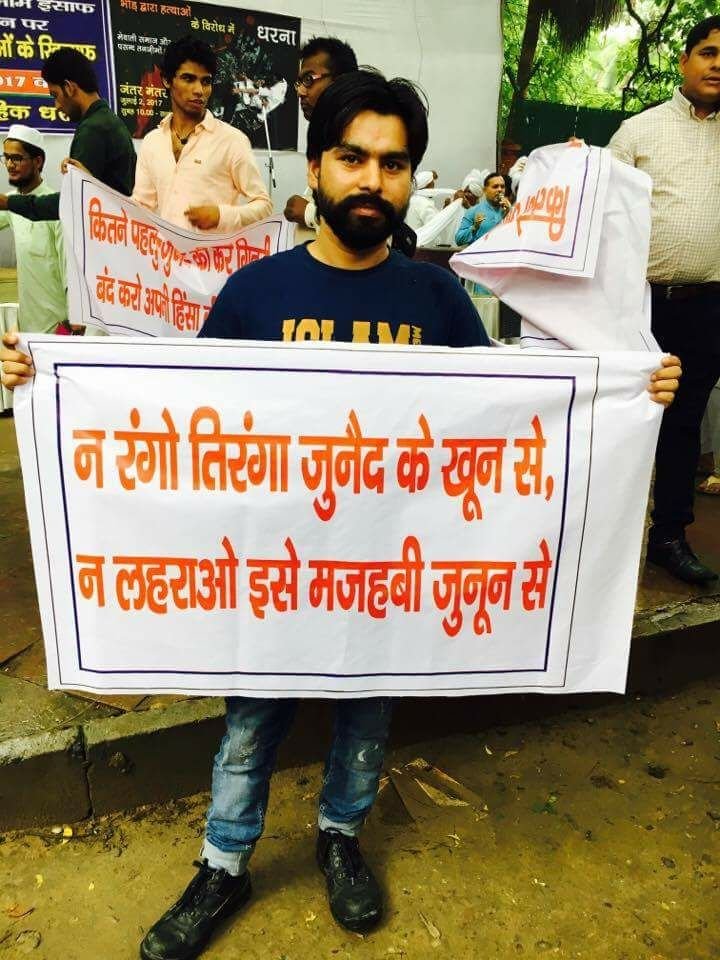 इंसाफ
न पर
ओं के खिलाफ
2017
भीड़ द्वारा हत्याओं
के विरोध में
धरना
जंतर मंतर
जुलाई 2, 2017
सुबह 10.00 -
कितने पहलु
का कर
बंद करो अपनी हिंसा
ISLAM
न रंगो तिरंगा जुनैद के खून से,
न लहराओ इसे मजहबी जुनून से